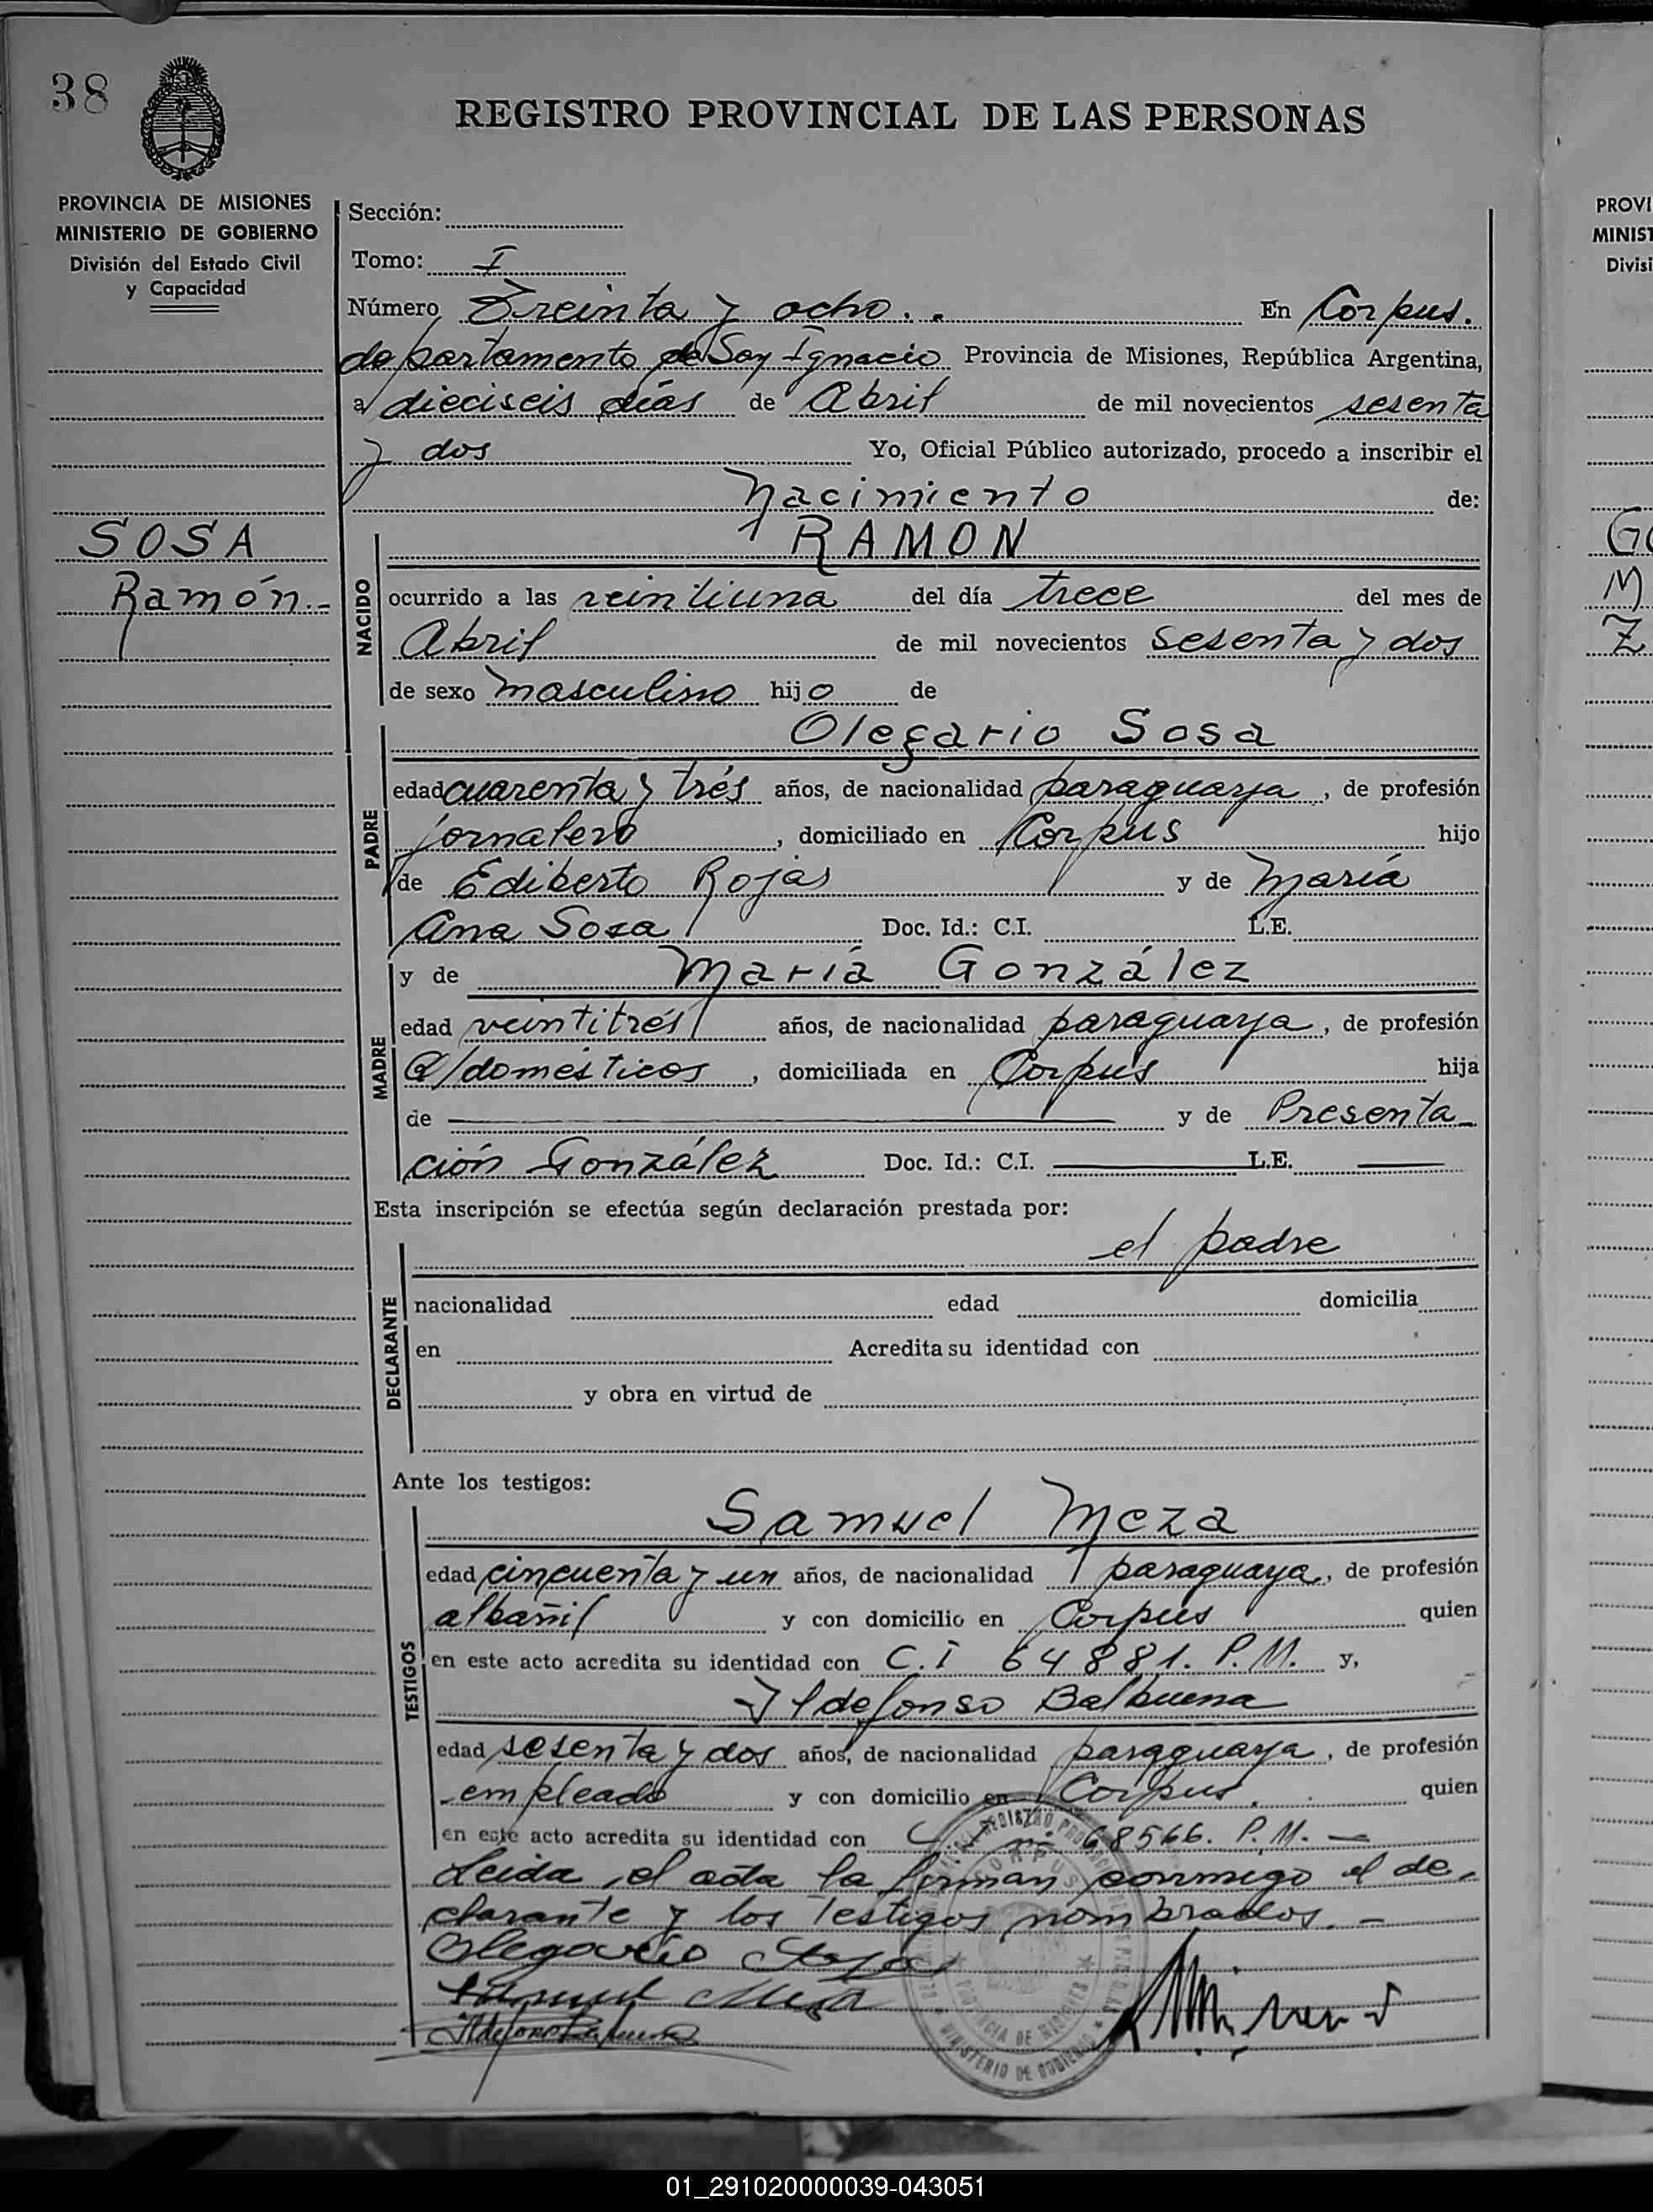 38
REGISTRO PROVINCIAL DE LAS PERSONAS
PROVINCIA DE MISIONES
MINISTERIO DE GOBIERNO
División del Estado Civil
y Capacidad
Sección:
Tomo: I
Número Treinta y ocho.. En Corpus.
departamento de San Ignacio Provincia de Misiones, República Argentina,
a dieciseis días de Abril de mil novecientos sesenta
y dos Yo, Oficial Público autorizado, procedo a inscribir el
Nacimiento de:
SOSA
Ramón.-
NACIDO
RAMON
ocurrido a las veintiuna del día trece del mes de
Abril de mil novecientos sesenta y dos
de sexo masculino hijo de
PADRE
Olegario Sosa
edad cuarenta y trés años, de nacionalidad paraguaya, de profesión
jornalero, domiciliado en Corpus hijo
de Ediberto Rojas y de María
Ana Sosa Doc. Id.: C.I. L.E.
MADRE
y de María González
edad veintitrés años, de nacionalidad paraguaya, de profesión
Q/domésticos, domiciliada en Corpus hija
de y de Presenta
ción González Doc. Id.: C.I. L.E.
Esta inscripción se efectúa según declaración prestada por:
DECLARANTE
el padre
nacionalidad edad domicilia
en Acredita su identidad con
y obra en virtud de
Ante los testigos:
TESTIGOS
Samuel Meza
edad cincuenta y un años, de nacionalidad paraguaya, de profesión
albañil y con domicilio en Corpus quien
en este acto acredita su identidad con C.I 64881. P.M. y,
Ildefonso Balbuena
edad sesenta y dos años, de nacionalidad paraguaya, de profesión
empleado y con domicilio en Corpus. quien
en este acto acredita su identidad con 68566. P.M.-
Leida el acta la firman conmigo el de-
clarante y los testigos nombrados.-
Olegario Sosa
Samuel Meza
Ildefonso Balbuena
PROVINCIA DE MISIONES
MINISTERIO DE GOBIERNO
PROVI
MINIST
Divisi
01_291020000039-043051